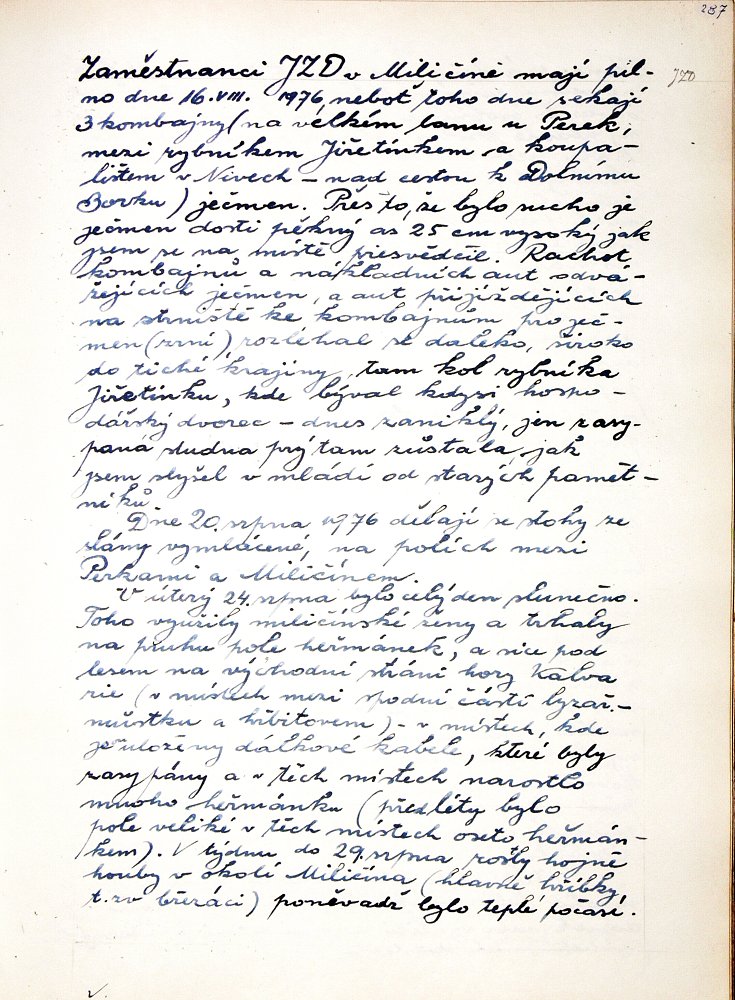 237
Zaměstnanci JZD v Miličíně mají pil-
JZD
no dne 16.VIII. 1976, neboť toho dne sekají
3 kombajny (na velkém lanu u Perek,
mezi rybníkem Jiřetínkem a koupa-
lištěm v Nivech - nad cestou k Dolnímu
Borku) ječmen. Přes to, že bylo sucho je
ječmen dosti pěkný as 25 cm vysoký jak
jsem se na místě přesvědčil. Rachot
kombajnů a nákladních aut odvá-
žejících ječmen, a aut přijíždějících
na strniště ke kombajnům pro ječ-
men (zrní) rozléhal se daleko, široko
do tiché krajiny, tam kol rybníka
Jiřetínku, kde býval kdysi hospo-
dářský dvorec - dnes zaniklý, jen zasy-
paná studna prý tam zůstala, jak
jsem slyšel v mládí od starých pamět-
níků.
Dne 20. srpna 1976 dělají se stohy ze
slámy vymlácené, na polích mezi
Perkami a Miličínem.
V úterý 24. srpna bylo celý den slunečno.
Toho využily miličínské ženy a trhaly
na pruhu pole heřmánek, a sice pod
lesem na východní stráni hory Kalva
rie (v místech mezi spodní částí lyžař.-
můstku a hřbitovem) - v místech, kde
je uloženy dálkové kabele, které byly
zasypány a v těch místech narostlo
mnoho heřmánku (před léty bylo
pole veliké v těch místech oseto heřmán-
kem). V týdnu do 29. srpna rostly hojně
houby v okolí Miličína (hlavně hříbky,
t.zv březáci) poněvadž bylo teplé počasí.